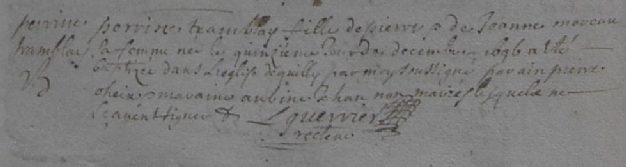 perrine perrine tramblay fille de pierre & de Jeanne moreau
tramblae sa femme nee le quinzieme Jour de decembre 1696 a esté
baptizée dans l'eglise de quilly par moy soussigné parain pierre
& maraine aubine non maires lesquels ne
scavent signer
L guerrier
recteur